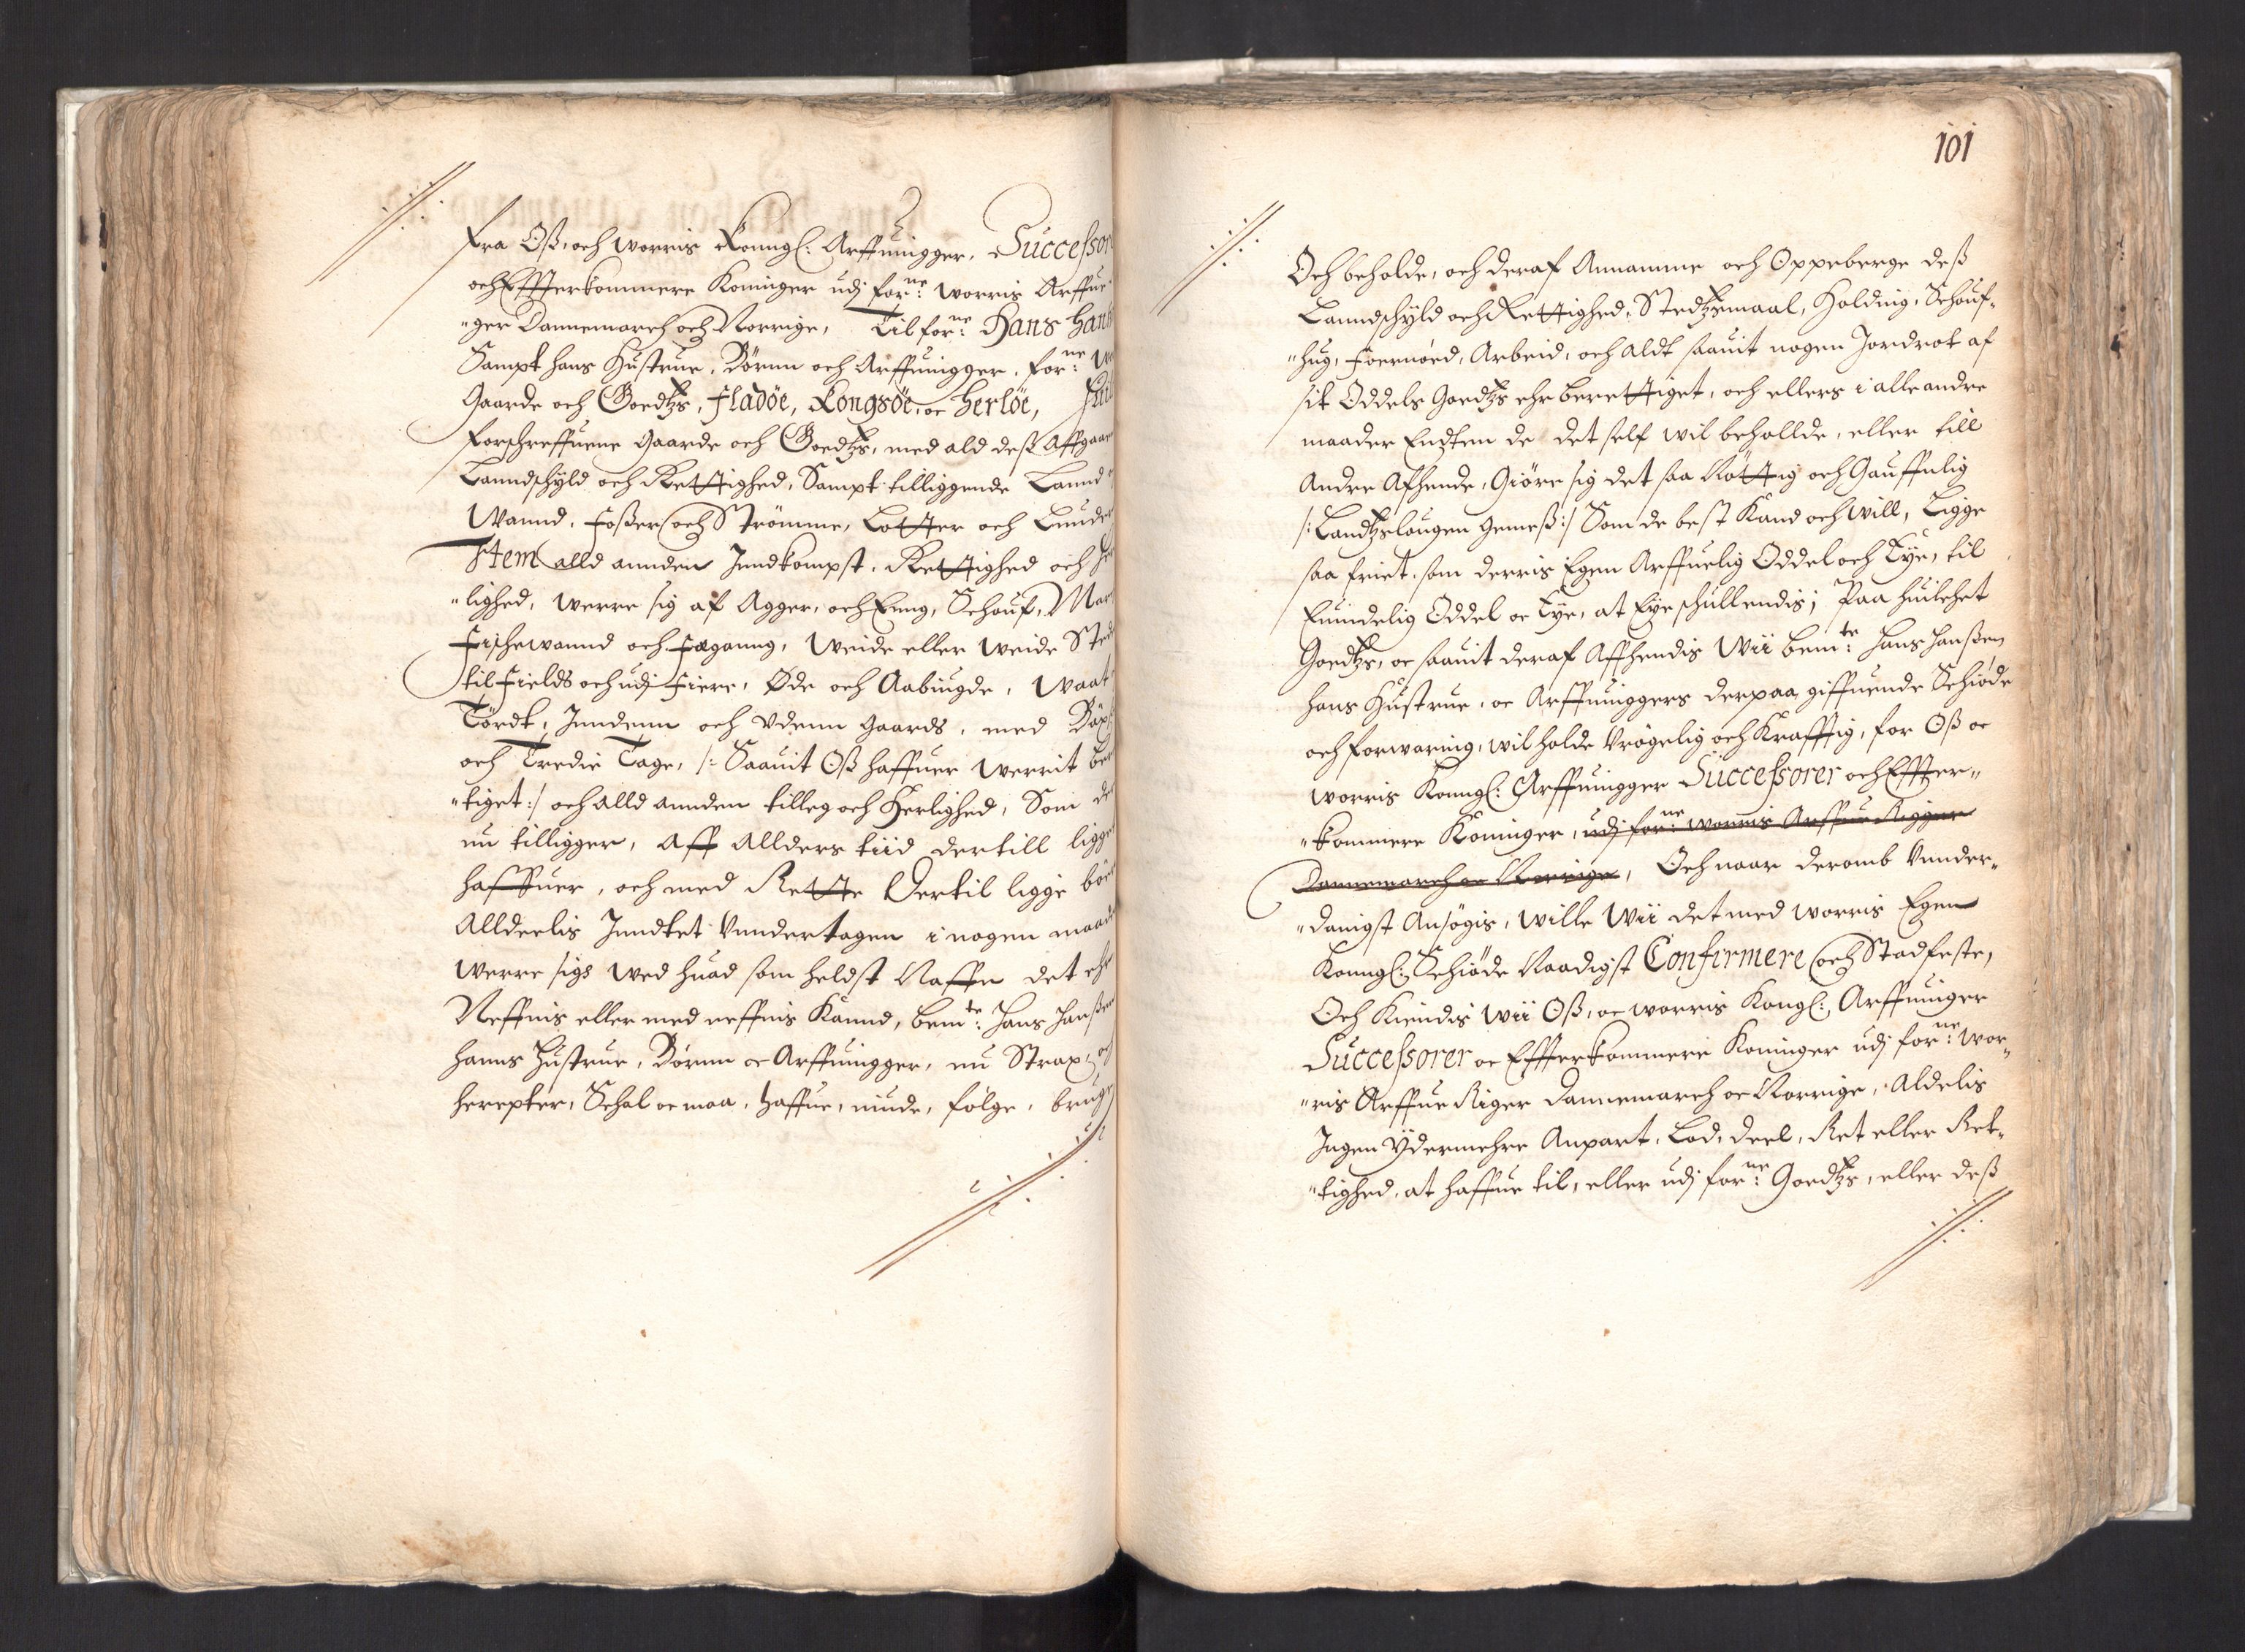 fra Oß, och worris Konngl: Arffuingger, Successor
och Effterkommere Koninger udj for:ne worris Arffue
"ger Dannemarch och Norrige, Til for:ne Hans Hanß
Sampt hans Hustrue, Börnn och Arffuingger, for:ne
Gaarde och Goedtzs, Fladöe, Longsöe, oc Herlöe,
forschreffuene Gaarde och Goedtzs, med ald deß Affgaar
Lanndschyld och Rettighed, Sampt tilliggende Lannd
Wannd, Foßer och Strömme, Lotter och Lunder
Item alld annden Inndkompst, Rettighed och Her
"lighed, werre sig af Agger, och Enng, Schouf, Mar
Fischewannd och Fæganng, Weide eller Weide Sted
til Fields och udj Fiere, Øde och Aabingde, Waat
Tördt, Inndenn och Udenn Gaards, med Böxel
och Tredie Tage, /: Saauit Oß haffuer Werrit ber
"tiget :/ och alld annden tilleg och Herlighed, Som der
nu tilligger, Aff Allders tiid dertill ligget
haffuer, och med Rette Dertil ligge bör
Alldeelis Inndtet Unndertagen i nogen maade
Werre sigs Wed huad som heldst Naffn det ehr
Neffnis eller med neffnis Kannd, bem:te Hans Hanßen
Hanns Hustrue, Börnn oc Arffuingger, nu Strax, oc
herepter, Schal oc maa, Haffue, niude, følge, bruge
101
Och beholde, och deraf Annamme och Oppeberge deß
Lanndschyld och Rettighed, Stedtzemaal, Holding, Schouf-
"hug, Foernöed, Arbeid, och aldt saauit nogen Jordrot af
sit Oddels Goedtzs ehr berettiget, och ellers i alle andre
maader Endten de det self wil behollde, eller till
Andre Afhende, Giöre sig det saa Nöttig och Gauffnlig
/: Landtzslougen Gemeß :/ Som de best Kand och Will, Ligge
saa friet, som derris Egen Arffuelig Oddel och Eye, til
Euindelig Oddel oc Eye, at Eye schullendis; Paa huilchet
Goedtzs, oc saauit deraf Affhendis Wii bem:te Hans Hanßen
Hans Hustrue, oc Arffuinggers derpaa giffuende Schiöde
och forwaring, wil holde Vrögelig och Krafftig, for Oß oc
worris Konngl: Arffuingger Successorer och Effter"
"kommere Koninger, udj for:ne worris Arffue Rigger
Dannemarch oc Norrige, Och naar deromb Unnder-
"danigst Ansögis, Wille Wii det med worris Egen
Konngl: Schiöde Naadigst Confirmere och Stadfeste,
Och Kiendis Wii Oß, oc worris Kongl: Arffuinger
Successorer oc Effterkommere Koninger udj for:ne Wor-
"ris Arffue Riger Dannemarch oc Norrige, Aldelis
Ingen Ydermehre Anpart, Lod, Deel, Ret eller Ret-
"tighed, at haffue til, eller udj for:ne Goedtzs, eller deß